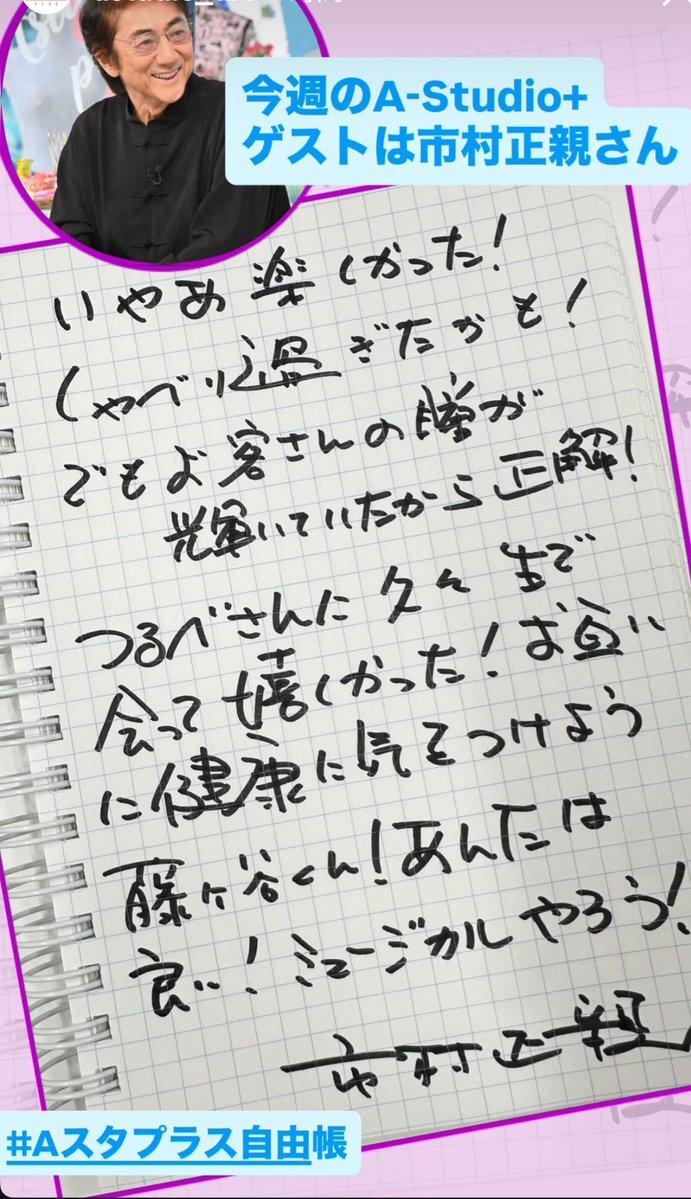 今週のA-Studio+
ゲストは市村正親さん
いやあ楽しかった!
しゃべり過ぎたかも!
でもお客さんの瞳が
輝いていたから正解!
つるべさんに久々生で
会って嬉しかった!お互い
に健康に気をつけよう
藤ヶ谷くん!あんたは
良い!ミュージカルやろう!
市村正親
#Aスタプラス自由帳